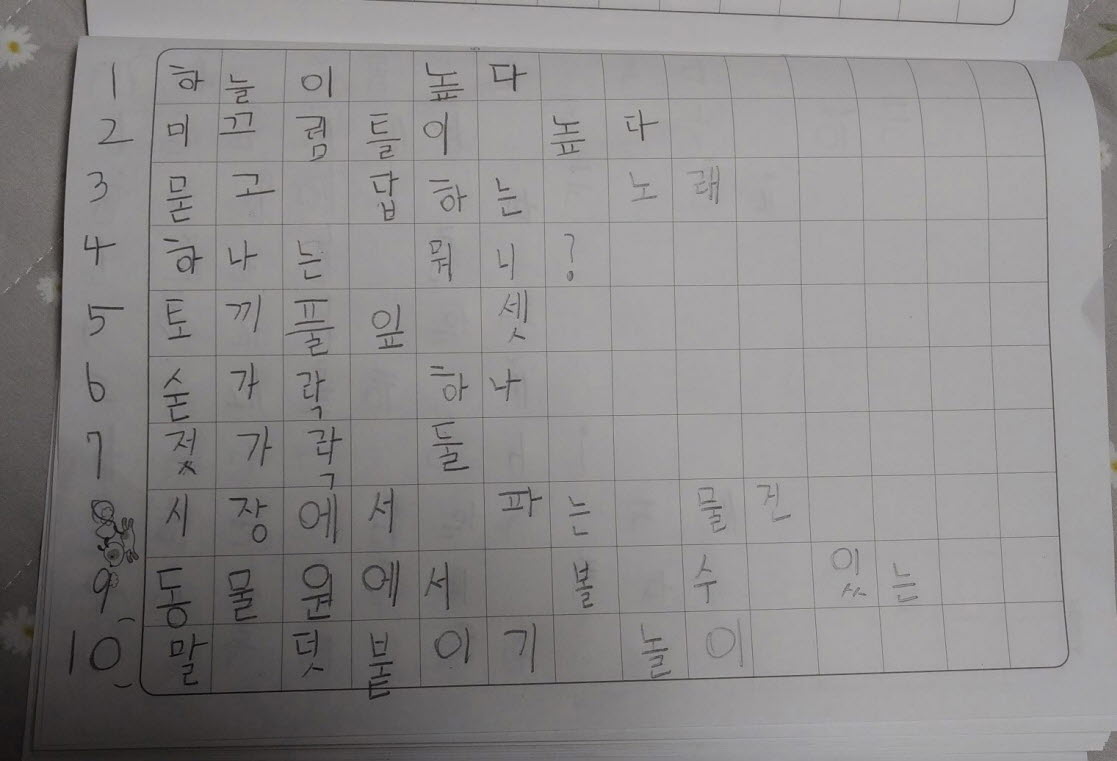 1 하늘이 높다
2 미끄럼틀이 높다
3 묻고 답하는 노래
4 하나는 뭐니?
5 토끼풀잎 셋
6 숟가락 하나
7 젓가락 둘
8 시장에서 파는 물건
9 동물원에서 볼 수 있는
10 말 덧붙이기 놀이